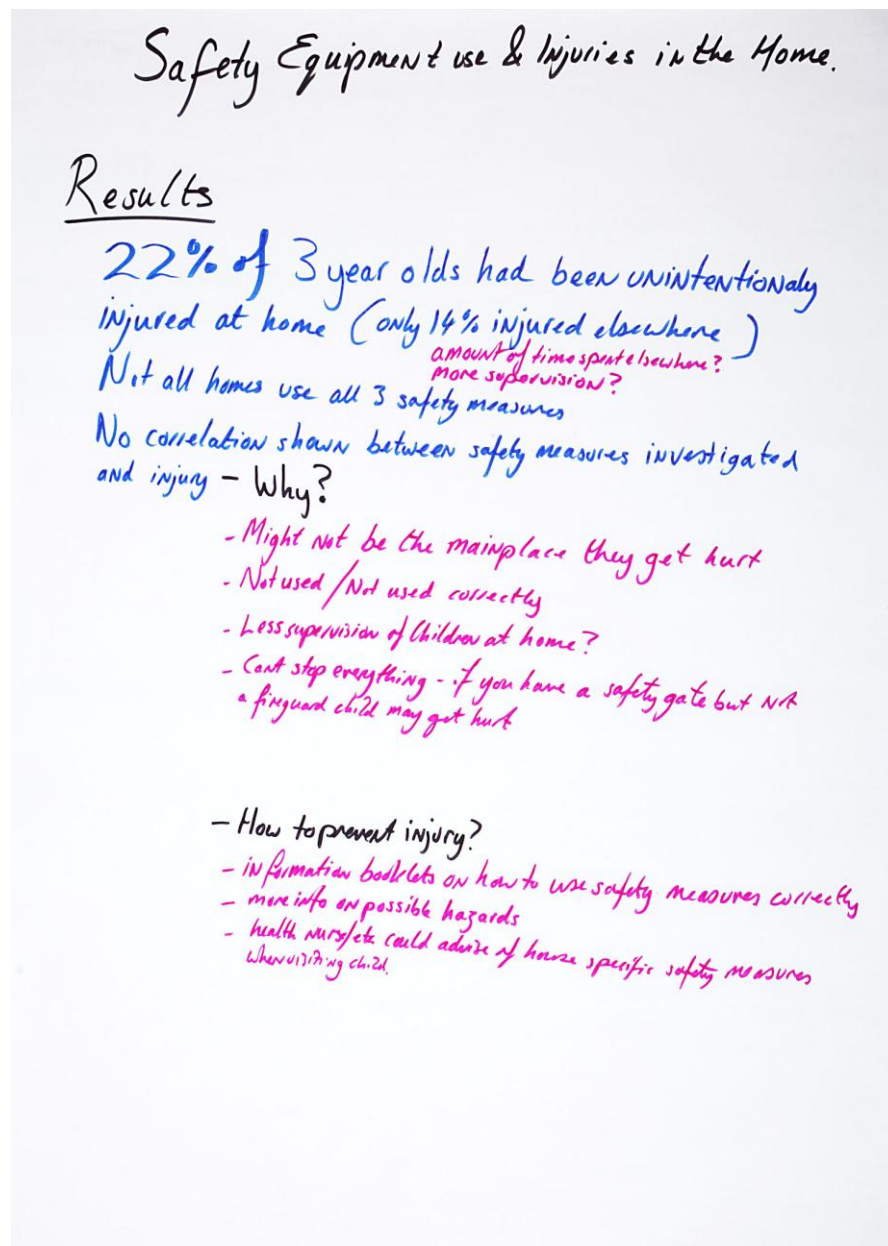 Safety Equipment use & Injuries in the Home.
Results
22% of 3 year olds had been unintentionaly
injured at home (only 14% injured elsewhere)
amount of time spent elsewhere?
more supervision?
Not all homes use all 3 safety measures
No correlation shown between safety measures investigated
and injury - Why?
- Might not be the mainplace they get hurt
- Not used/Not used correctly
- Less supervision of Children at home?
- Cant stop everything - if you have a safety gate but not
a fireguard child may get hurt
- How to prevent injury?
- information booklets on how to use safety measures correctly
- more info on possible hazards
- health nurse/etc could advise of house specific safety measures
when visiting child.